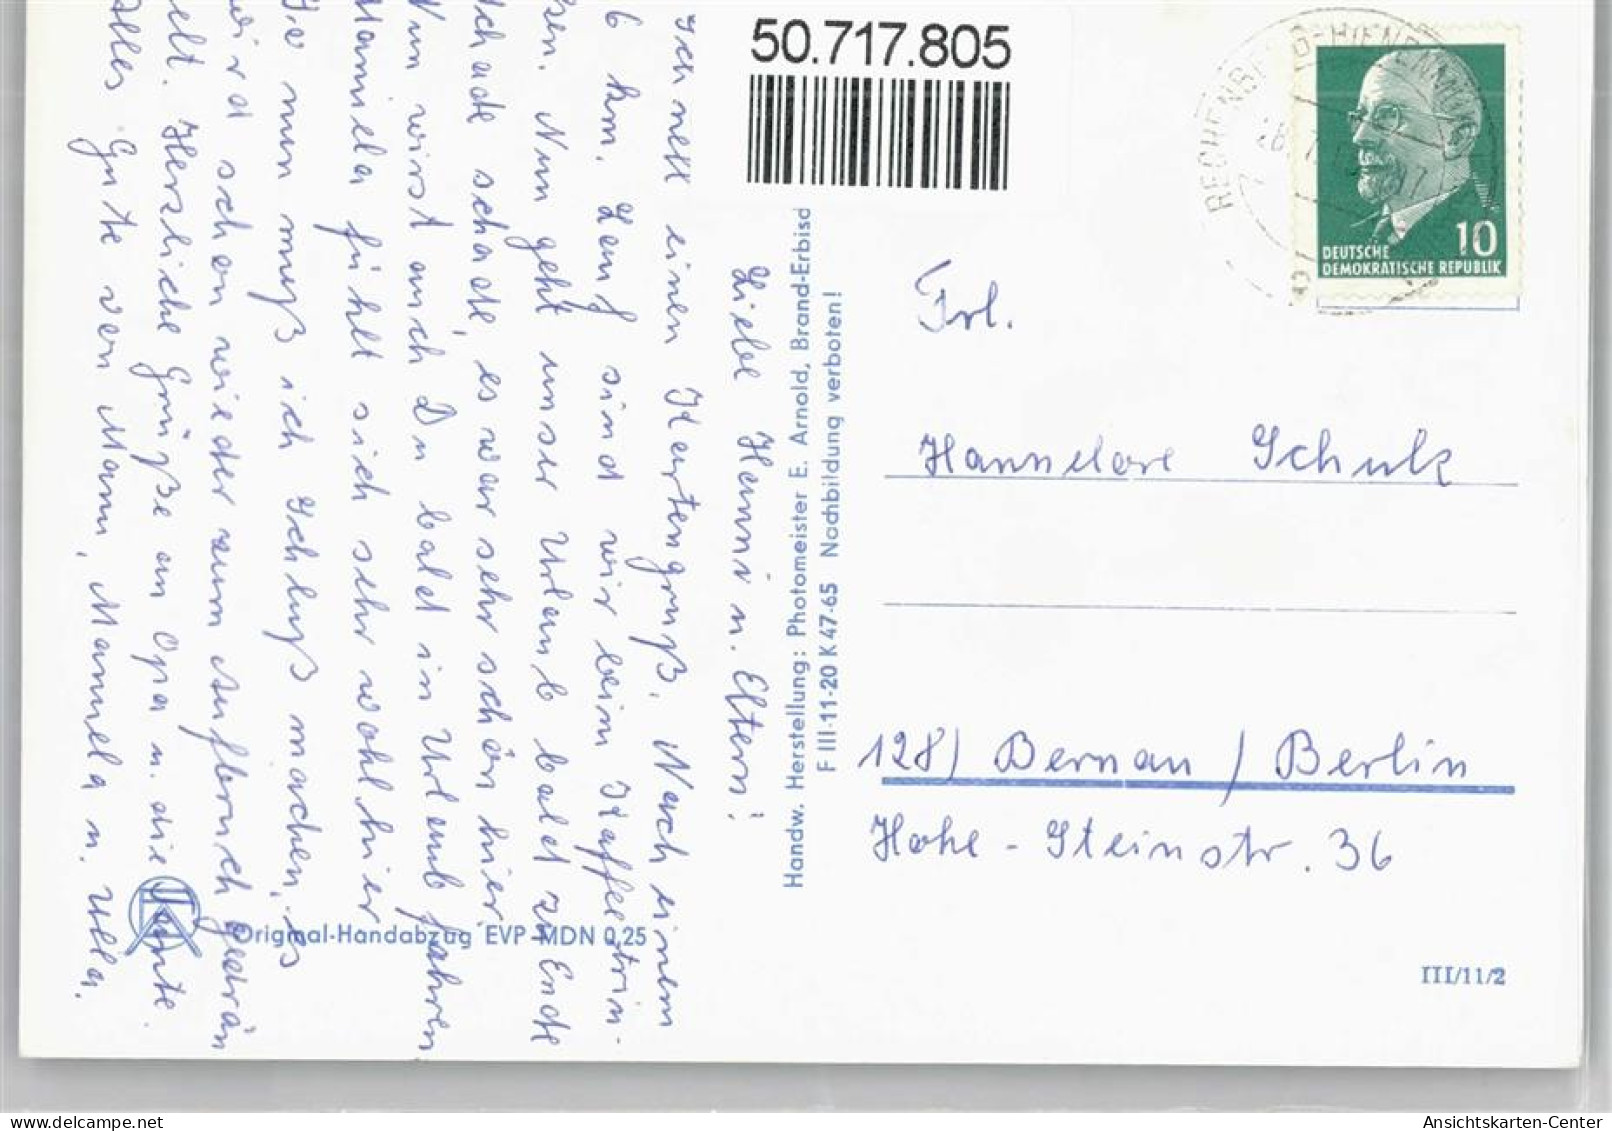 50.717.805
RECHENBERG-BIENENMÜ
DEUTSCHE
DEMOKRATISCHE REPUBLIK
10
Liebe Hanni u. Eltern!
Schnell einen Kartengruß. Nach einem
6 km. Lauf sind wir beim Kaffeetrin-
ken. Nun geht unser Urlaub bald zu Ende
schade schade, es war sehr schön hier.
Nun wirst auch Du bald in Urlaub fahren
Manuela fühlt sich sehr wohl hier
So nun muß ich Schluß machen, es
wird schon wieder zum Aufbruch gedrän
gelt. Herzliche Grüße an Opa u. die Tante.
Alles Gute von Mann, Manuela u. Ulla.
Handw. Herstellung: Photomeister E. Arnold, Brand-Erbisd
F III-11-20 K 47-65 Nachbildung verboten!
Original-Handabzug EVP MDN 0,25
Frl.
Hannelore Schulz
128) Bernau / Berlin
Hohe-Steinstr. 36
III/11/2
Ansichtskarten-Center